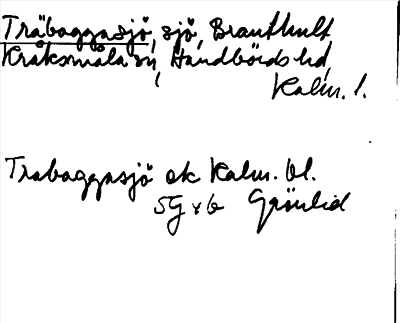 Träbaggasjö, sjö, Branthult
Kråksmåla sn, Handbörds hd,
Kalm. l.
Trabaggasjö ek Kalm. bl.
5G x b Grönlid